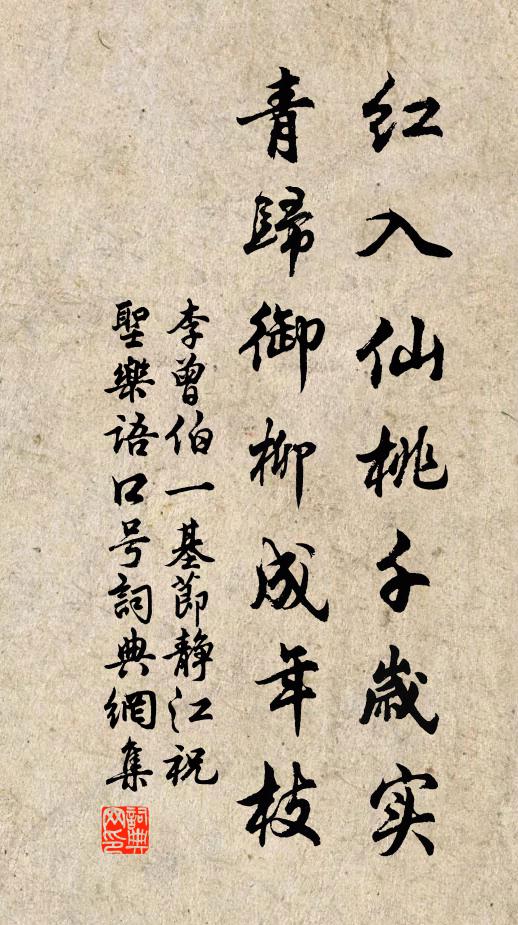 红入仙桃千歲实
青歸御柳成年枝
李曾伯一基節静江祝
聖樂语口号詞典網集
詞典网印